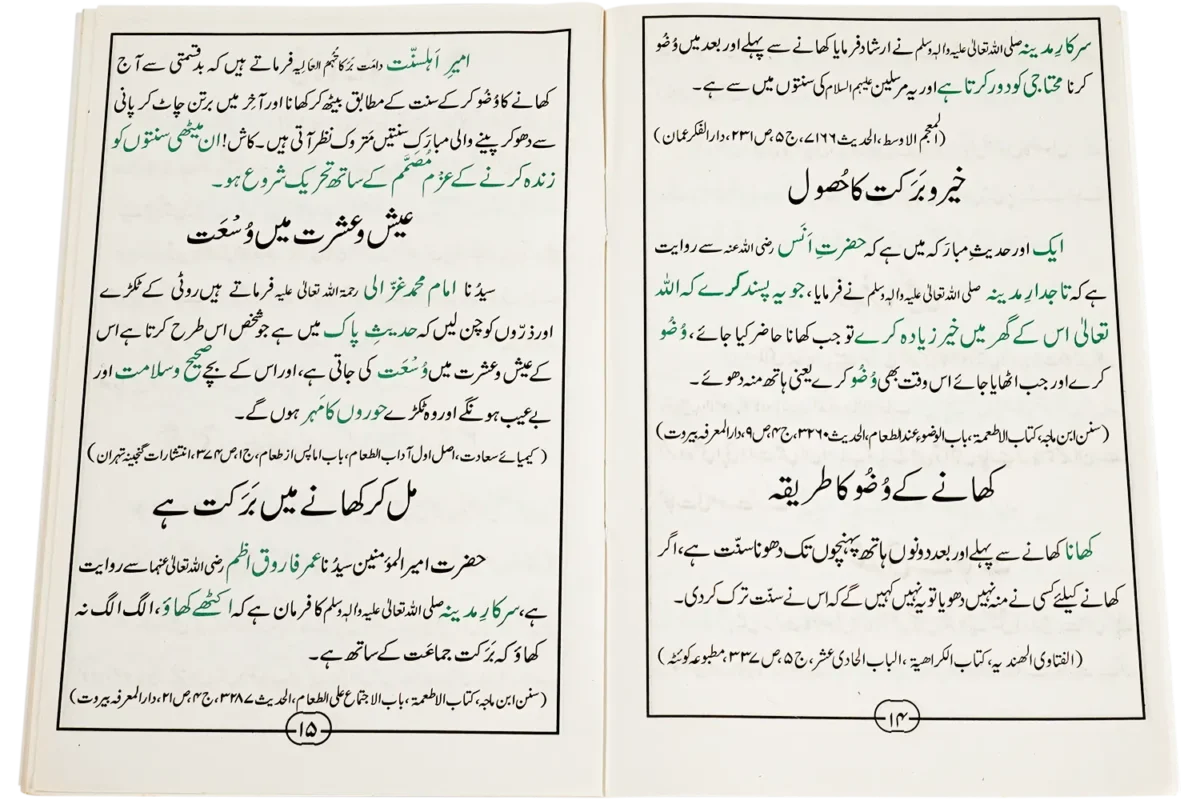 سرکارِ مدینہ صلی اللہ تعالیٰ علیہ والہٖ وسلم نے ارشاد فرمایا کھانے سے پہلے اور بعد میں وُضُو
کرنا محتاجی کو دور کرتا ہے اور یہ مرسلین علیہم السلام کی سنتوں میں سے ہے۔
(المعجم الاوسط، الحدیث ۷۱۶۶، ج ۵، ص ۲۳۱، دار الفکر عمان)
خیر و بَرَکت کا حُصُول
ایک اور حدیثِ مبارَکہ میں ہے کہ حضرتِ اَنَس رضی اللہ عنہ سے روایت
ہے کہ تاجدارِ مدینہ صلی اللہ تعالیٰ علیہ والہٖ وسلم نے فرمایا، جو یہ پسند کرے کہ اللہ
تعالیٰ اس کے گھر میں خیر زیادہ کرے تو جب کھانا حاضر کیا جائے، وُضُو
کرے اور جب اٹھایا جائے اس وقت بھی وُضُو کرے یعنی ہاتھ منہ دھوئے۔
(سنن ابن ماجہ، کتاب الاطعمۃ، باب الوضوء عند الطعام، الحدیث ۳۲۶۰، ج ۴، ص ۹، دار المعرفہ بیروت)
کھانے کے وُضُو کا طریقہ
کھانا کھانے سے پہلے اور بعد دونوں ہاتھ پہنچوں تک دھونا سنّت ہے، اگر
کھانے کیلئے کسی نے منہ نہیں دھویا تو یہ نہیں کہیں گے کہ اس نے سنّت ترک کر دی۔
(الفتاوی الھندیہ، کتاب الکراھیۃ، الباب الحادی عشر، ج ۵، ص ۳۳۷، مطبوعہ کوئٹہ)
۱۴
امیرِ اَہلسنّت دامَت بَرَکاتُہُم العالیہ فرماتے ہیں کہ بدقسمتی سے آج
کھانے کا وُضُو کر کے سنت کے مطابق بیٹھ کر کھانا اور آخِر میں برتن چاٹ کر پانی
سے دھو کر پینے والی مبارَک سنتیں مَتروک نظر آتی ہیں۔ کاش! ان میٹھی سنتوں کو
زندہ کرنے کے عزْمِ مُصَمَّم کے ساتھ تحریک شروع ہو۔
عیش و عشرت میں وُسْعَت
سیدُنا امام محمد غزّالی رحمۃ اللہ تعالیٰ علیہ فرماتے ہیں روٹی کے ٹکڑے
اور ذرّوں کو چن لیں کہ حدیثِ پاک میں ہے جو شخص اس طرح کرتا ہے اس
کے عیش و عشرت میں وُسْعَت کی جاتی ہے، اور اس کے بچے صحیح و سلامت اور
بے عیب ہونگے اور وہ ٹکڑے حوروں کا مَہر ہوں گے۔
(کیمیائے سعادت، اصل اول آداب الطعام، باب اما پس از طعام، ج ۱، ص ۳۷۴، انتشارات گنجینہ تہران)
مل کر کھانے میں بَرَکت ہے
حضرت امیر المؤمنین سیدُنا عمر فاروقِ اعظم رضی اللہ تعالیٰ عنہما سے روایت
ہے، سرکارِ مدینہ صلی اللہ تعالیٰ علیہ والہٖ وسلم کا فرمان ہے کہ اکٹھے کھاؤ، الگ الگ نہ
کھاؤ کہ بَرَکت جماعَت کے ساتھ ہے۔
(سنن ابن ماجہ، کتاب الاطعمۃ، باب الاجتماع علی الطعام، الحدیث ۳۲۸۷، ج ۴، ص ۲۱، دار المعرفہ بیروت)
۱۵